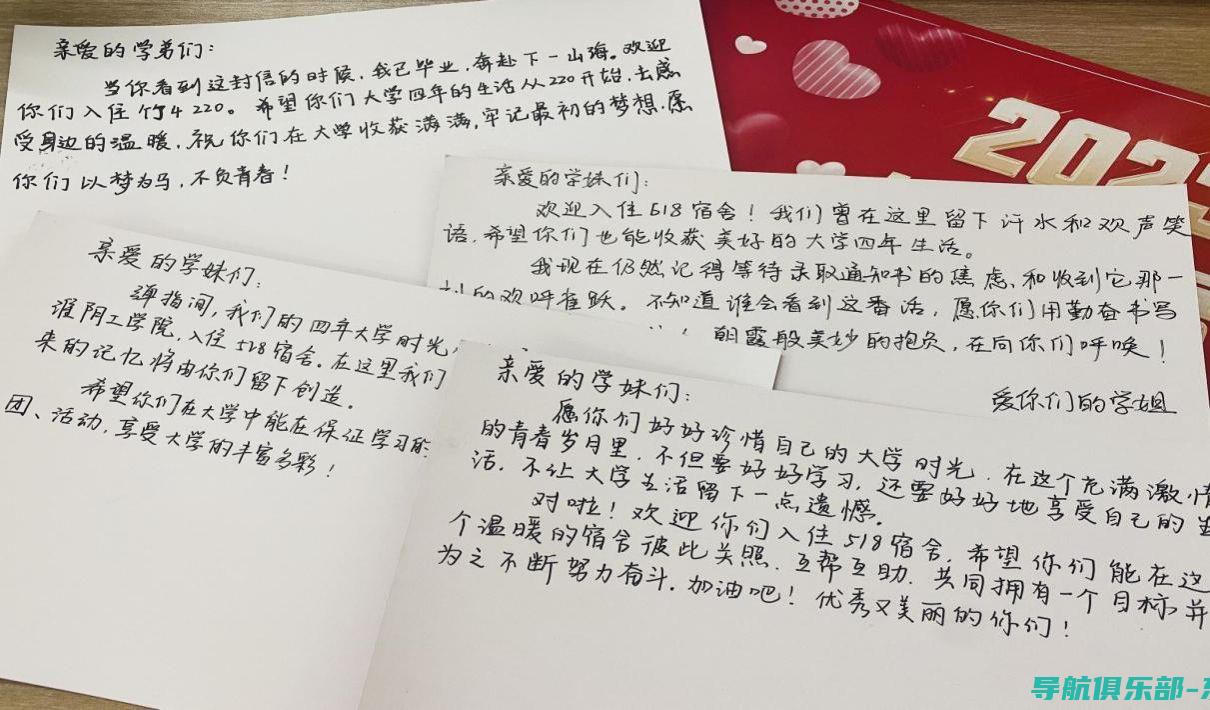 亲爱的学弟们:
当你看到这封信的时候,我已毕业,奔赴下一山海。欢迎
你们入住竹4 220。希望你们大学四年的生活从220开始,去感
受身边的温暖,祝你们在大学收获满满,牢记最初的梦想,愿
你们以梦为马,不负青春!
202
亲爱的学妹们:
欢迎入住518宿舍!我们曾在这里留下汗水和欢声笑
语,希望你们也能收获美好的大学四年生活。
我现在仍然记得等待录取通知书的焦虑,和收到它那一
的欢呼雀跃。不知道谁会看到这番话,愿你们用勤奋书写
!朝霞般美妙的抱负,在向你们呼唤!
爱你们的学姐
亲爱的学妹们:
弹指间,我们的四年大学时光,
淮阴工学院,入住518宿舍。在这里我们
来的记忆将由你们留下创造。
希望你们在大学中能在保证学习的
团、活动,享受大学的丰富多彩!
亲爱的学妹们:
愿你们好好珍惜自己的大学时光,在这个充满激情
的青春岁月里,不但要好好学习,还要好好地享受自己的生
活,不让大学生活留下一点遗憾。
对啦!欢迎你们入住518宿舍,希望你们能在这
个温暖的宿舍彼此关照,互帮互助,共同拥有一个目标并
为之不断努力奋斗,加油吧!优秀又美丽的你们!
导航俱乐部-